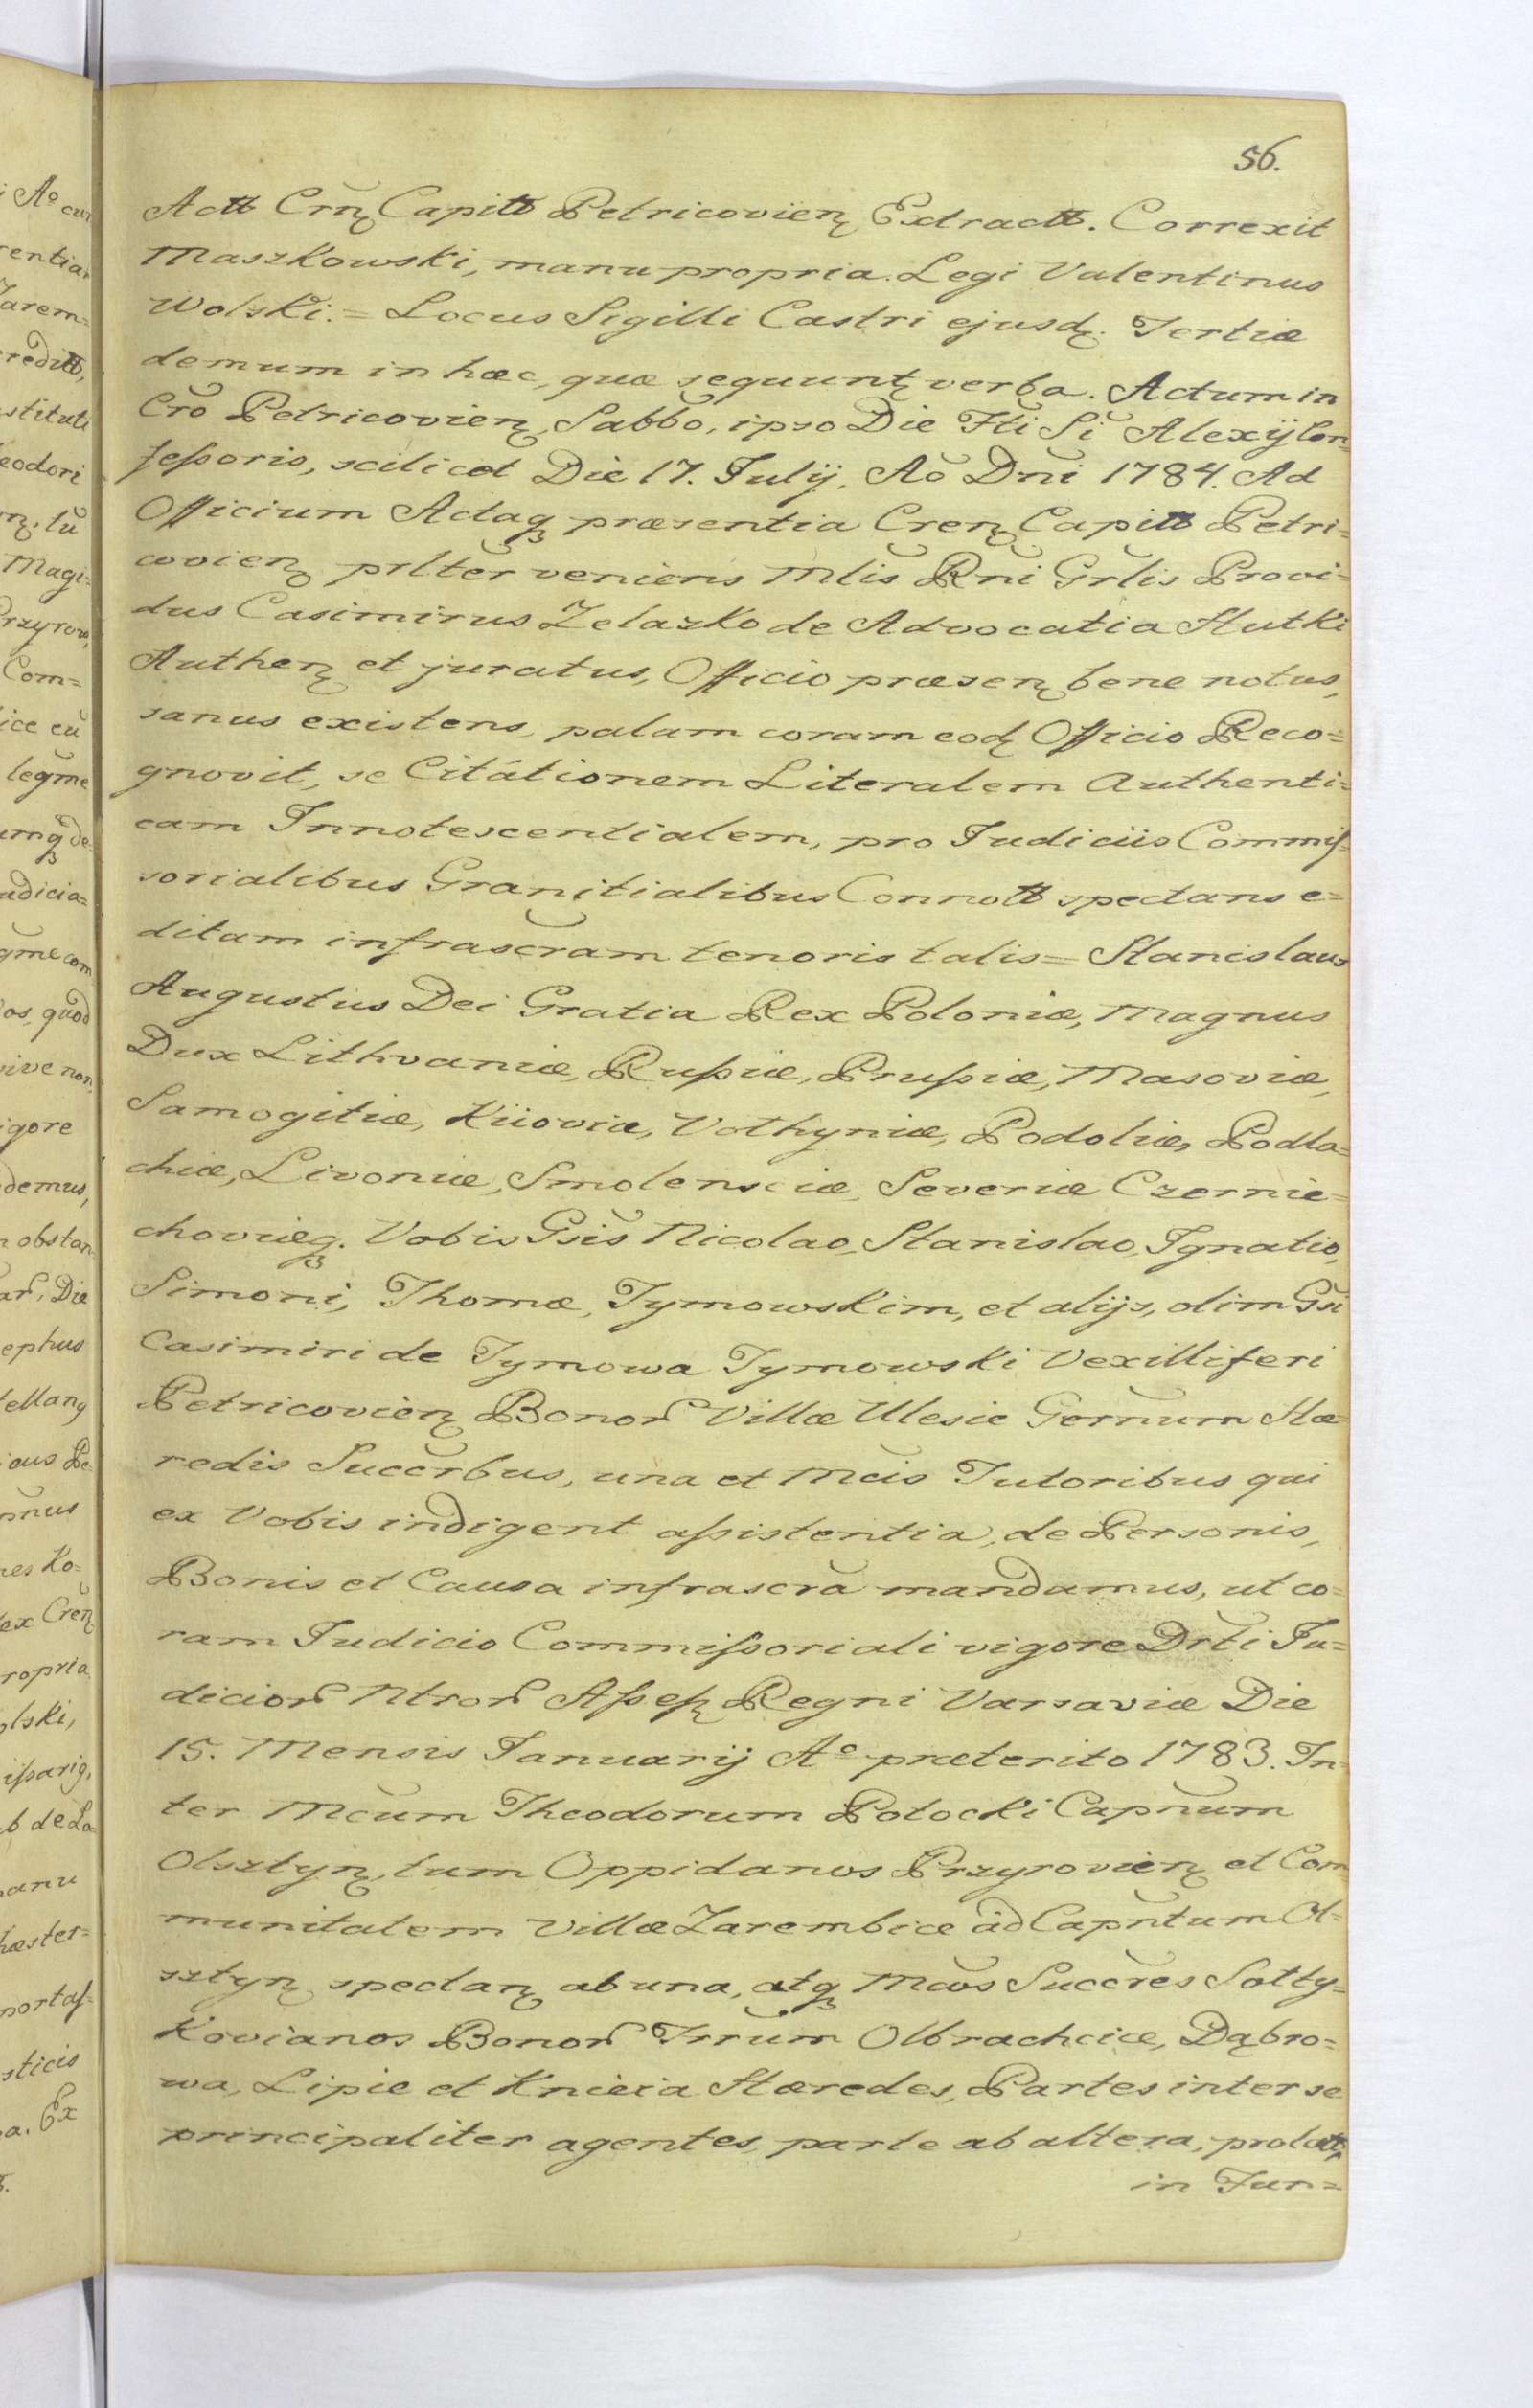 56.
Actt Crñ Capitt Petricovien Extractt. Correxit
Maszkowski, manu propria. Legi Valentinus
Wolski. = Locus Sigilli Castri ejusd. Tertiæ
demum in hæc, quæ sequunt verba. Actum in
Cro Petricovien, Sabbo, ipso Die Fti Si Alexij Con=
feßoris, scilicet Die 17. Julij, Ao Dni 1784. Ad
Officium Actaq præsentia Cren Capitt Petri=
covien prlter veniens Mlis Rni Grlis Provi=
dus Casimirus Zelazko de Advocatia Hutki
Authen et juratus, Officio præsen bene notus,
sanus existens, palam coram eod Officio Reco=
gnovit, se Citátionem Literalem Authenti=
cam Innotescentialem, pro Judiciis Commiß=
sorialibus Granitialibus Connott spectans e=
ditam infrascram tenoris talis = Stanislaus
Augustus Dei Gratia Rex Poloniæ, Magnus
Dux Lithvaniæ, Rußiæ, Prußiæ, Masoviæ,
Samogitiæ, Kiioviæ, Volhyniæ, Podoliæ, Podla=
chiæ, Livoniæ, Smolensciæ, Severiæ Czernie=
choviæq. Vobis Gsis Nicolao, Stanislao, Ignatio,
Simoni, Thomæ, Tymowskim, et alijs, olim Gsi
Casimiri de Tymowa Tymowski Vexilliferi
Petricovien Bonor Villæ Ulesie Gernum Hæ=
redis Succrbus, una et Mcis Tutoribus qui
ex Vobis indigent aßistentia, de Personis,
Bonis et Causa infrascra mandamus, ut co=
ram Judicio Commißoriali vigore Drti Ju=
dicior Ntror Aßeß Regni Varsaviæ Die
15. Mensis Januarij Aº præterito 1783. In=
ter Mcum Theodorum Potocki Capnum
Olsztyn, tum Oppidanos Przyrovien et Com
munitatem Villæ Zarembice ad Capntum Ol=
sztyn spectan ab una, atq Mcos Succres Solty=
Kovianos Bonor Irrum Olbrachcice, Dąbro=
wa, Lipie et Knieia Hæredes, Partes inter se
principaliter agentes, parte ab altera, prolatt
in Fun=